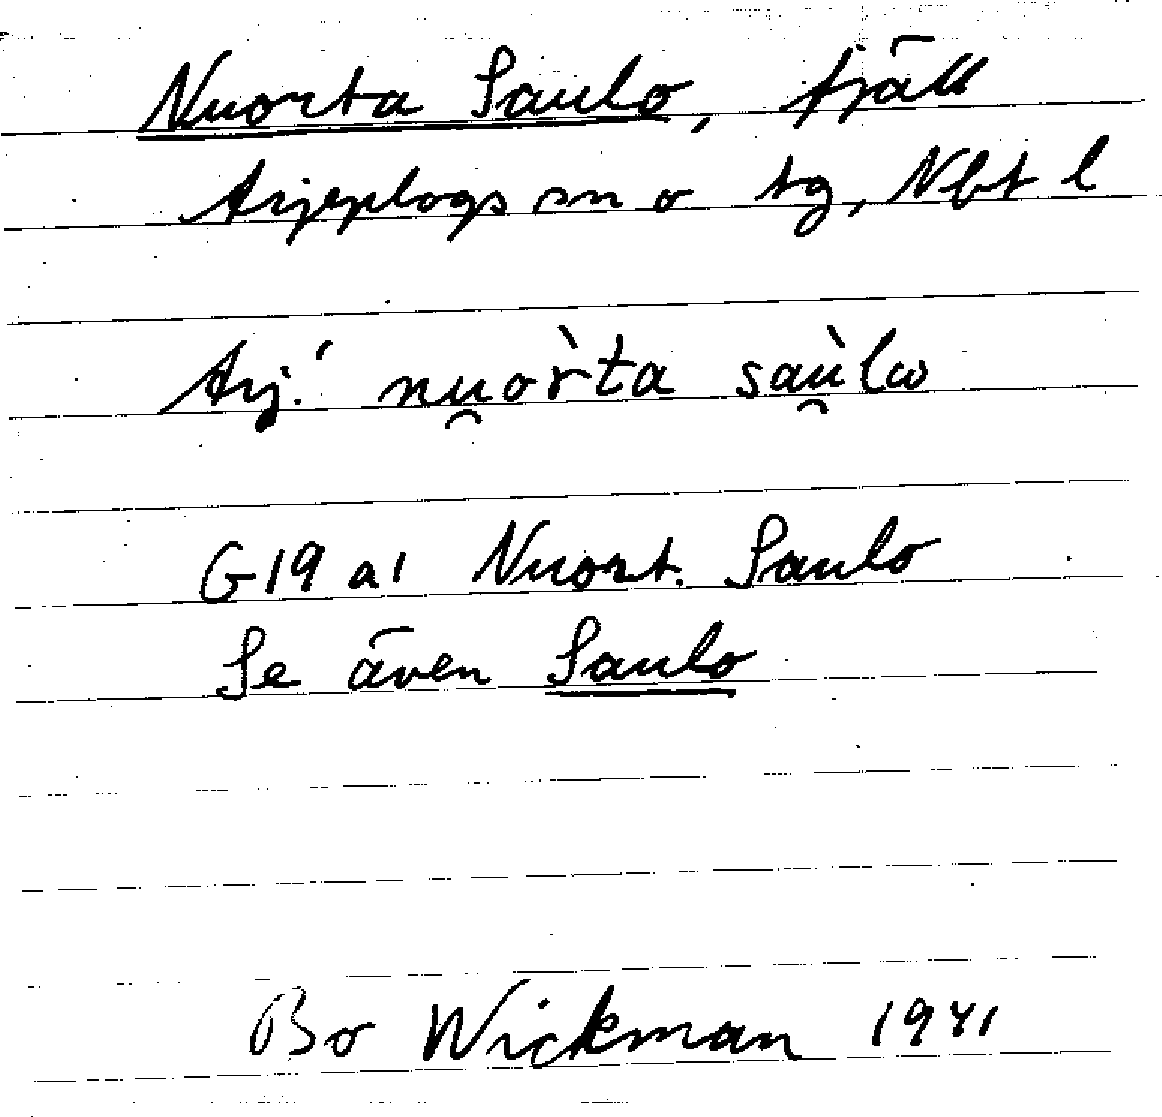 Nuorta Saulo, fjäll
Arjeplogs sn o tg, Nbt l
Arj.' nu̯òr̀ta saù̯lω
G19 a1 Nuort. Saulo
Se även Saulo
Bo Wickman 1941